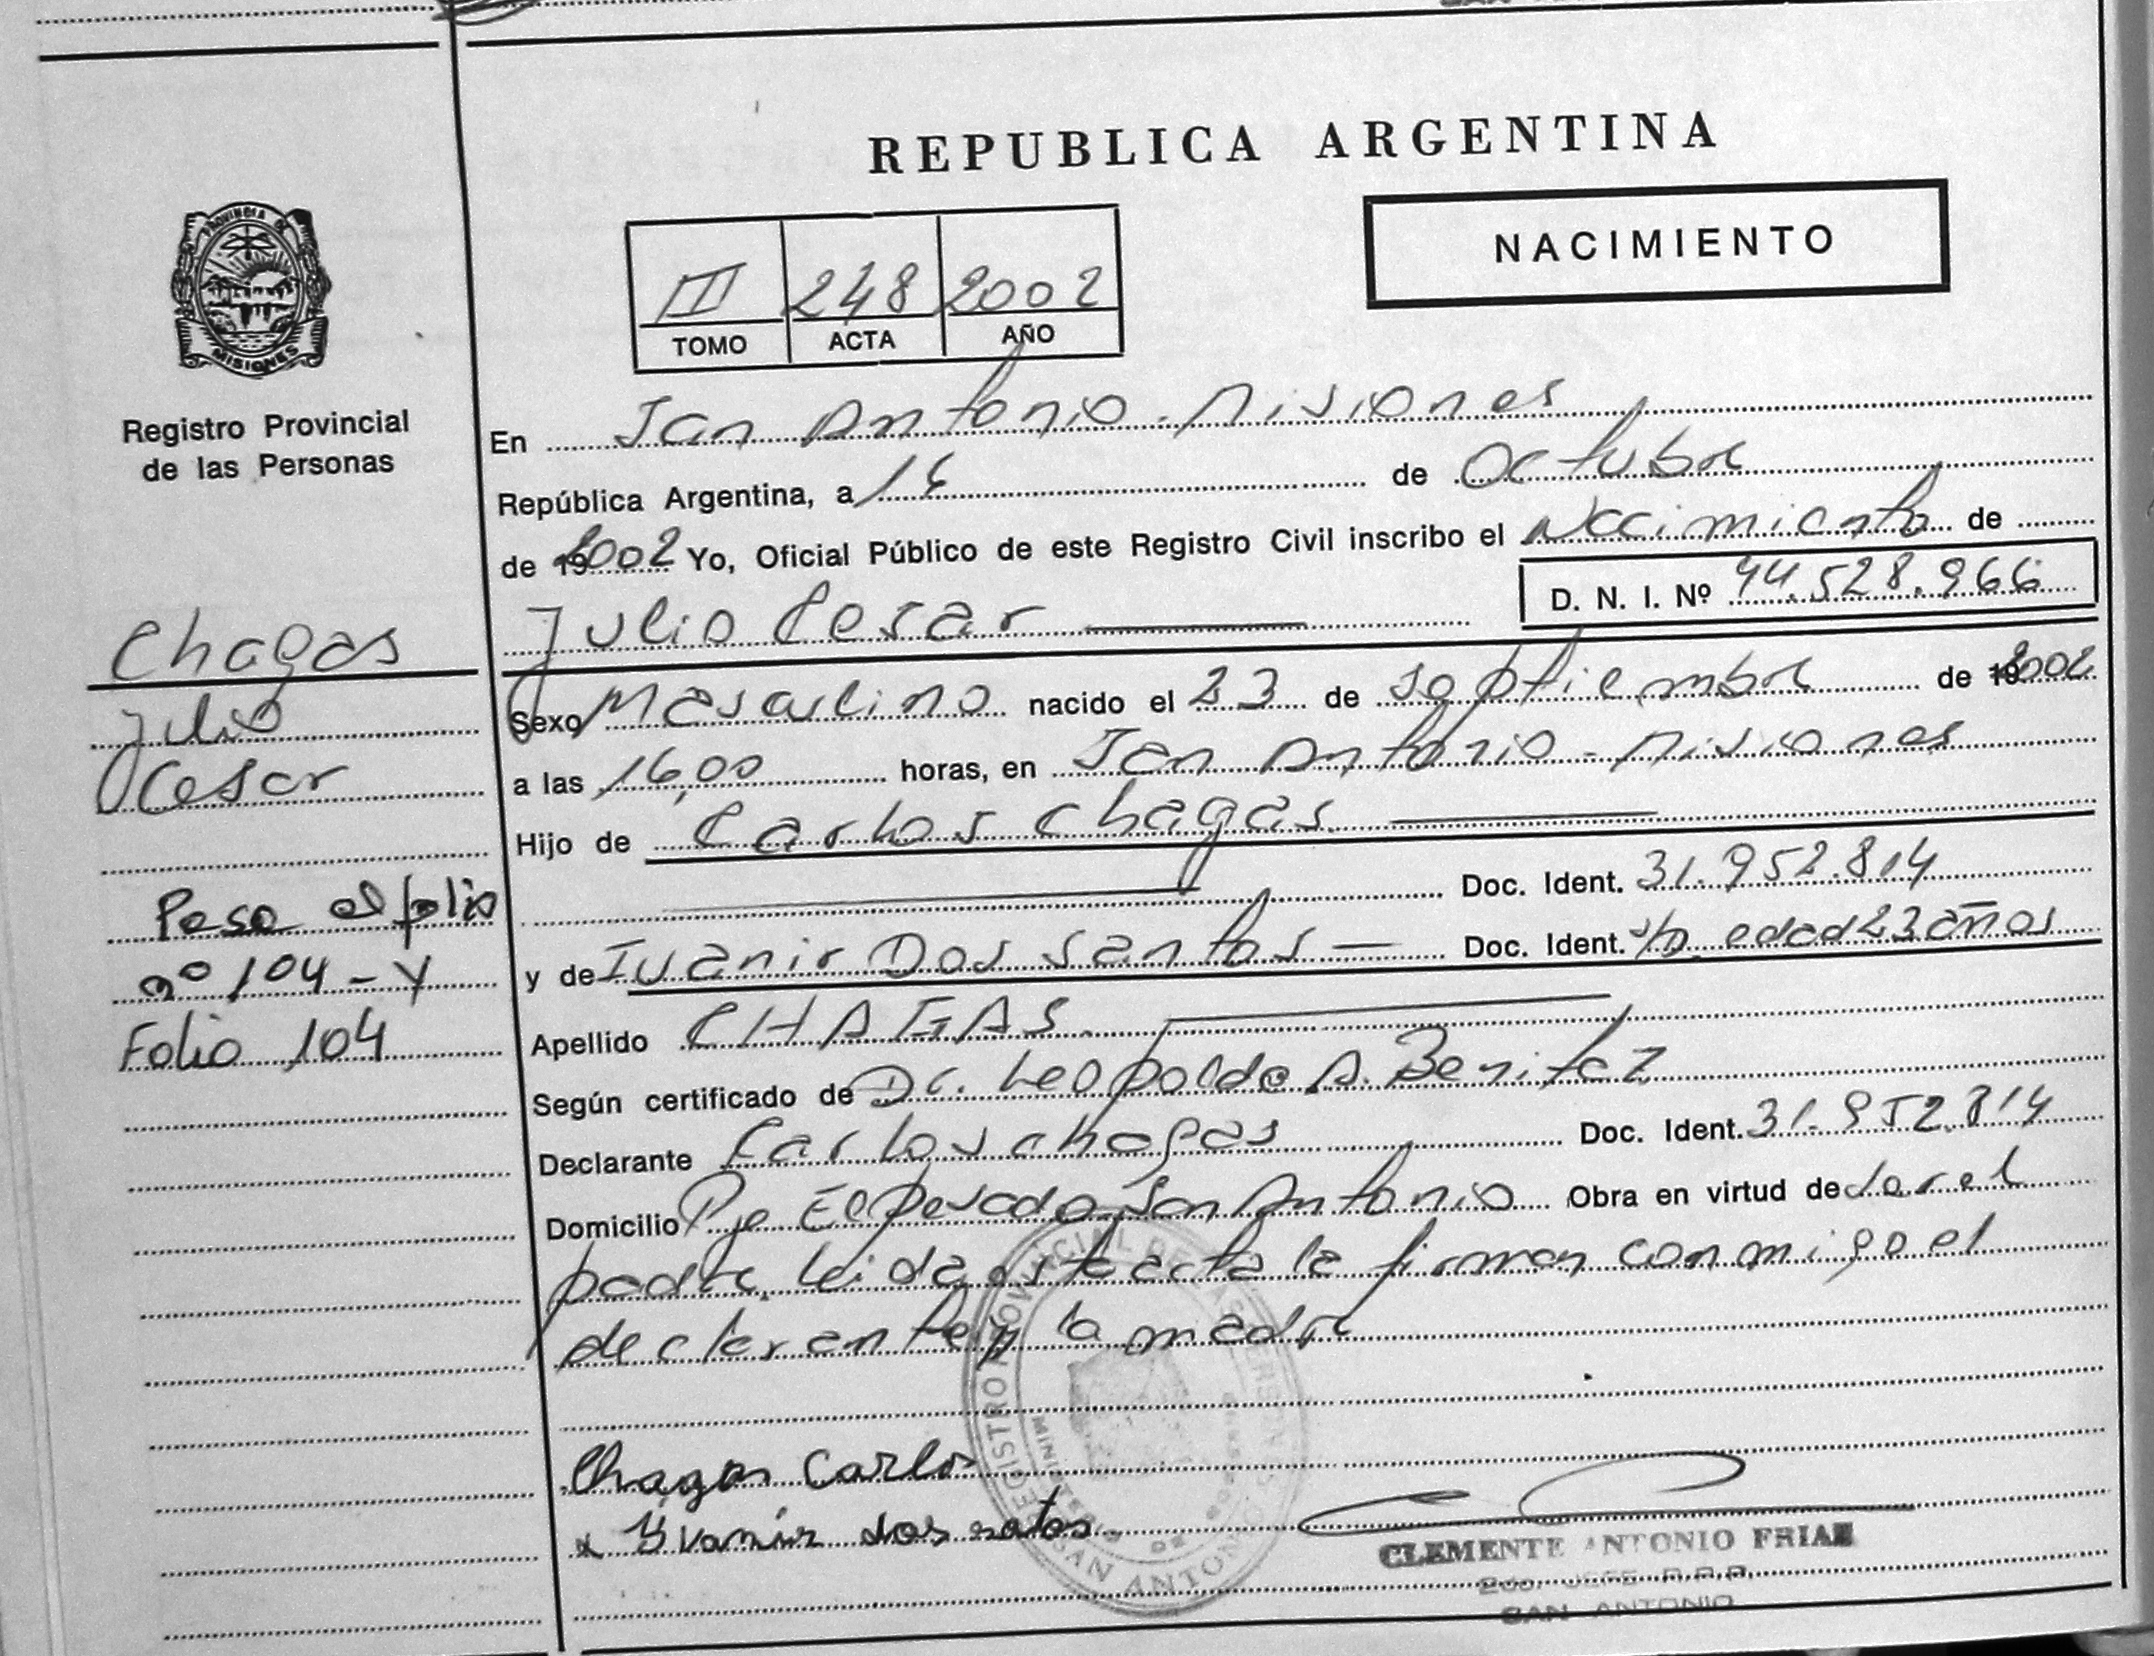 REPUBLICA ARGENTINA
NACIMIENTO
III 248 2002
TOMO ACTA AÑO
PROVINCIA DE
MISIONES
Registro Provincial
de las Personas
Chagas
Julio
Cesar
Pasa al folio
nº 104 - Y
Folio 104
En San Antonio - Misiones
República Argentina, a 16 de Octubre
de 2002 Yo, Oficial Público de este Registro Civil inscribo el Nacimiento de
D. N. I. Nº 44.528.966
Julio Cesar
Sexo Masculino nacido el 23 de Septiembre de 2002
a las 16,00 horas, en San Antonio - Misiones
Hijo de Carlos Chagas
Doc. Ident. 31.952.814
y de Ivanir Dos Santos Doc. Ident. s/D. edad 23 años
Apellido CHAGAS
Según certificado de Dr. Leopoldo A. Benitez
Declarante Carlos Chagas Doc. Ident. 31.952.814
Domicilio Pje El Pesado San Antonio Obra en virtud de ser el
padre. Leida este acta la firman conmigo el
declarante y la madre
Chagas Carlos
x Yvanir dos satos
REGISTRO PROVINCIAL DE LAS PERSONAS
MINISTERIO DE GOBIERNO
SAN ANTONIO
CLEMENTE ANTONIO FRIAS
JEFE R.P.P.
SAN ANTONIO